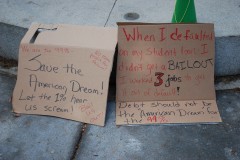 We are the 99%
Save the
American Dream!
Let the 1% hear
us scream!
When I defaulted
on my student loans I
didn't get a BAILOUT
I worked 3 jobs to
Debt should not be
the American Dream for
the 99%